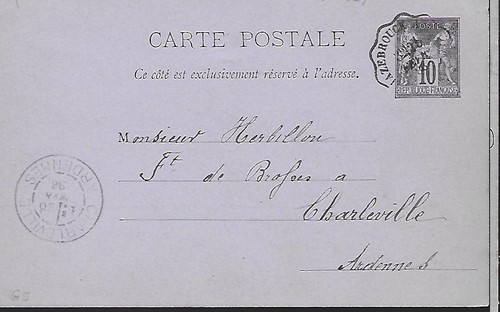 CARTE POSTALE
Ce côté est exclusivement réservé à l'adresse.
POSTE
10
REPUBLIQUE FRANÇAISE
Monsieur Herbillon
Ft de
à
Charleville
Ardennes
CHARLEVILLE
ARDENNES